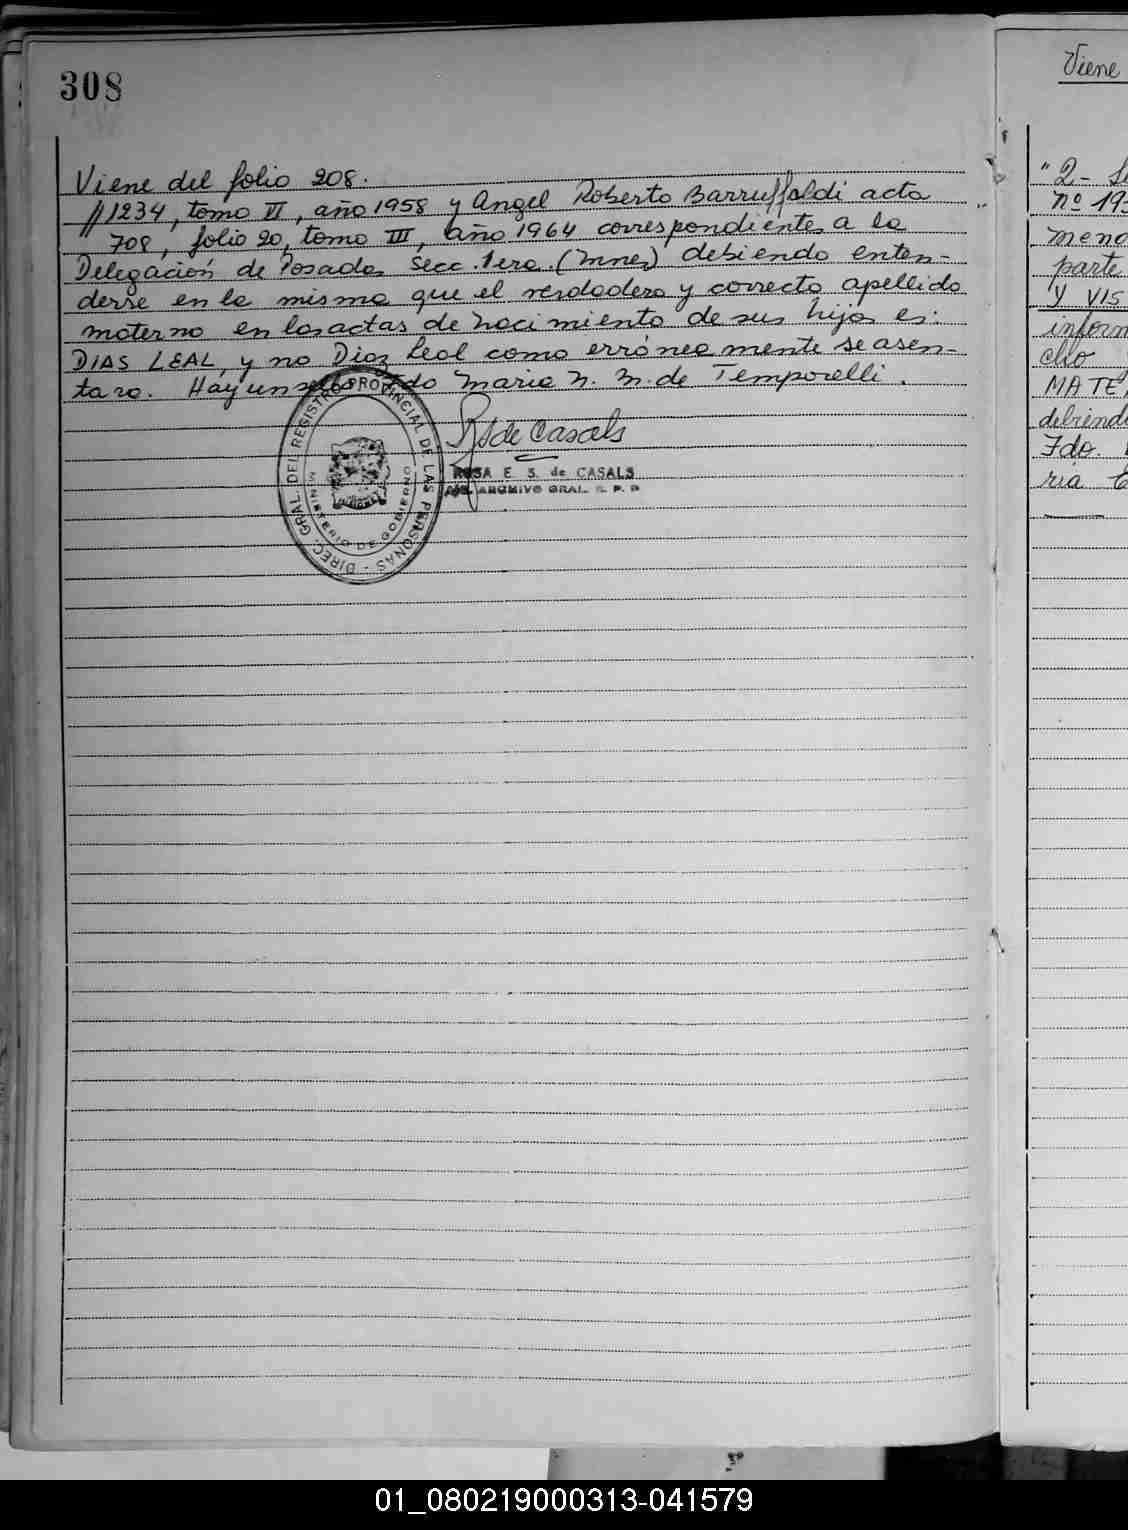 308
Viene del folio 208.
//1234, tomo VI, año 1958 y Angel Roberto Barruffaldi acta
708, folio 20, tomo III, año 1964 correspondientes a la
Delegación de Posadas Secc. 1era. (Mnes) debiendo enten-
derse en la misma que el verdadero y correcto apellido
materno en las actas de nacimiento de sus hijos es:
DIAS LEAL, y no Diaz Leal como erróneamente se asen-
tara. Hay un sello Fdo Maria N. M. de Temporelli.
R S de Casals
ROSA E. S. de CASALS
ARCHIVO GRAL. R. P. P.
DIREC. GRAL. DEL REGISTRO PROVINCIAL DE LAS PERSONAS -
MINISTERIO DE GOBIERNO
Viene
"2-
nº 193
mend
parte
y VIS
inform
cho
MATE
debiend
Fdo.
ria
01_080219000313-041579